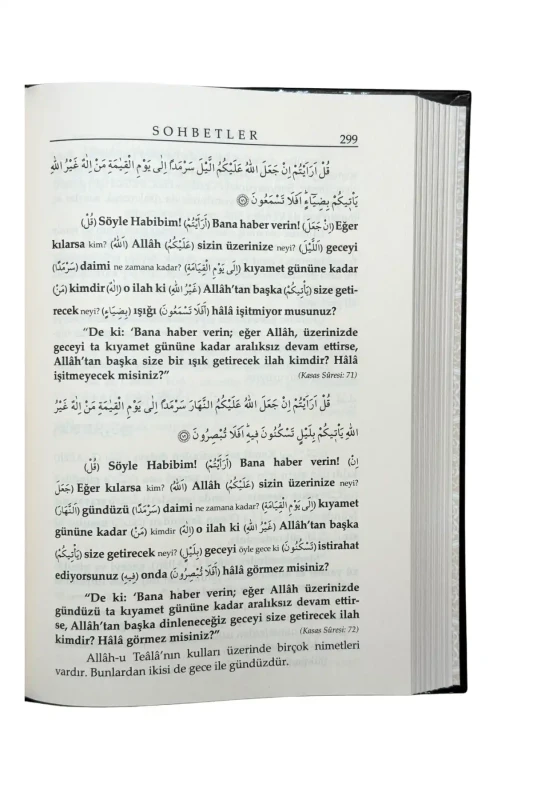 SOHBETLER 299
قُلْ اَرَاَيْتُمْ اِنْ جَعَلَ اللّٰهُ عَلَيْكُمُ الَّيْلَ سَرْمَدًا اِلٰى يَوْمِ الْقِيٰمَةِ مَنْ اِلٰهٌ غَيْرُ اللّٰهِ
يَاْتٖيكُمْ بِضِيَٓاءٍ اَفَلَا تَسْمَعُونَ ﴿٧١﴾
(قُلْ) Söyle Habibim! (اَرَاَيْتُمْ) Bana haber verin! (اِنْ جَعَلَ) Eğer
kılarsa kim? (اللّٰهُ) Allâh (عَلَيْكُمُ) sizin üzerinize neyi? (الَّيْلَ) geceyi
(سَرْمَدًا) daimi ne zamana kadar? (اِلٰى يَوْمِ الْقِيٰمَةِ) kıyamet gününe kadar
(مَنْ) kimdir (اِلٰهٌ) o ilah ki (غَيْرُ اللّٰهِ) Allâh'tan başka (يَاْتٖيكُمْ) size geti-
recek neyi? (بِضِيَٓاءٍ) ışığı (اَفَلَا تَسْمَعُونَ) hâlâ işitmiyor musunuz?
"De ki: 'Bana haber verin; eğer Allâh, üzerinizde
geceyi ta kıyamet gününe kadar aralıksız devam ettirse,
Allâh'tan başka size bir ışık getirecek ilah kimdir? Hâlâ
işitmeyecek misiniz?" (Kasas Sûresi: 71)
قُلْ اَرَاَيْتُمْ اِنْ جَعَلَ اللّٰهُ عَلَيْكُمُ النَّهَارَ سَرْمَدًا اِلٰى يَوْمِ الْقِيٰمَةِ مَنْ اِلٰهٌ غَيْرُ
اللّٰهِ يَاْتٖيكُمْ بِلَيْلٍ تَسْكُنُونَ فٖيهِ اَفَلَا تُبْصِرُونَ ﴿٧٢﴾
(قُلْ) Söyle Habibim! (اَرَاَيْتُمْ) Bana haber verin! (اِنْ
جَعَلَ) Eğer kılarsa kim? (اللّٰهُ) Allâh (عَلَيْكُمُ) sizin üzerinize neyi?
(النَّهَارَ) gündüzü (سَرْمَدًا) daimi ne zamana kadar? (اِلٰى يَوْمِ الْقِيٰمَةِ) kıyamet
gününe kadar (مَنْ) kimdir (اِلٰهٌ) o ilah ki (غَيْرُ اللّٰهِ) Allâh'tan başka
(يَاْتٖيكُمْ) size getirecek neyi? (بِلَيْلٍ) geceyi öyle gece ki (تَسْكُنُونَ) istirahat
ediyorsunuz (فٖيهِ) onda (اَفَلَا تُبْصِرُونَ) hâlâ görmez misiniz?
"De ki: 'Bana haber verin; eğer Allâh üzerinizde
gündüzü ta kıyamet gününe kadar aralıksız devam ettir-
se, Allâh'tan başka dinleneceğiz geceyi size getirecek ilah
kimdir? Hâlâ görmez misiniz?" (Kasas Sûresi: 72)
Allâh-u Teâlâ'nın kulları üzerinde birçok nimetleri
vardır. Bunlardan ikisi de gece ile gündüzdür.